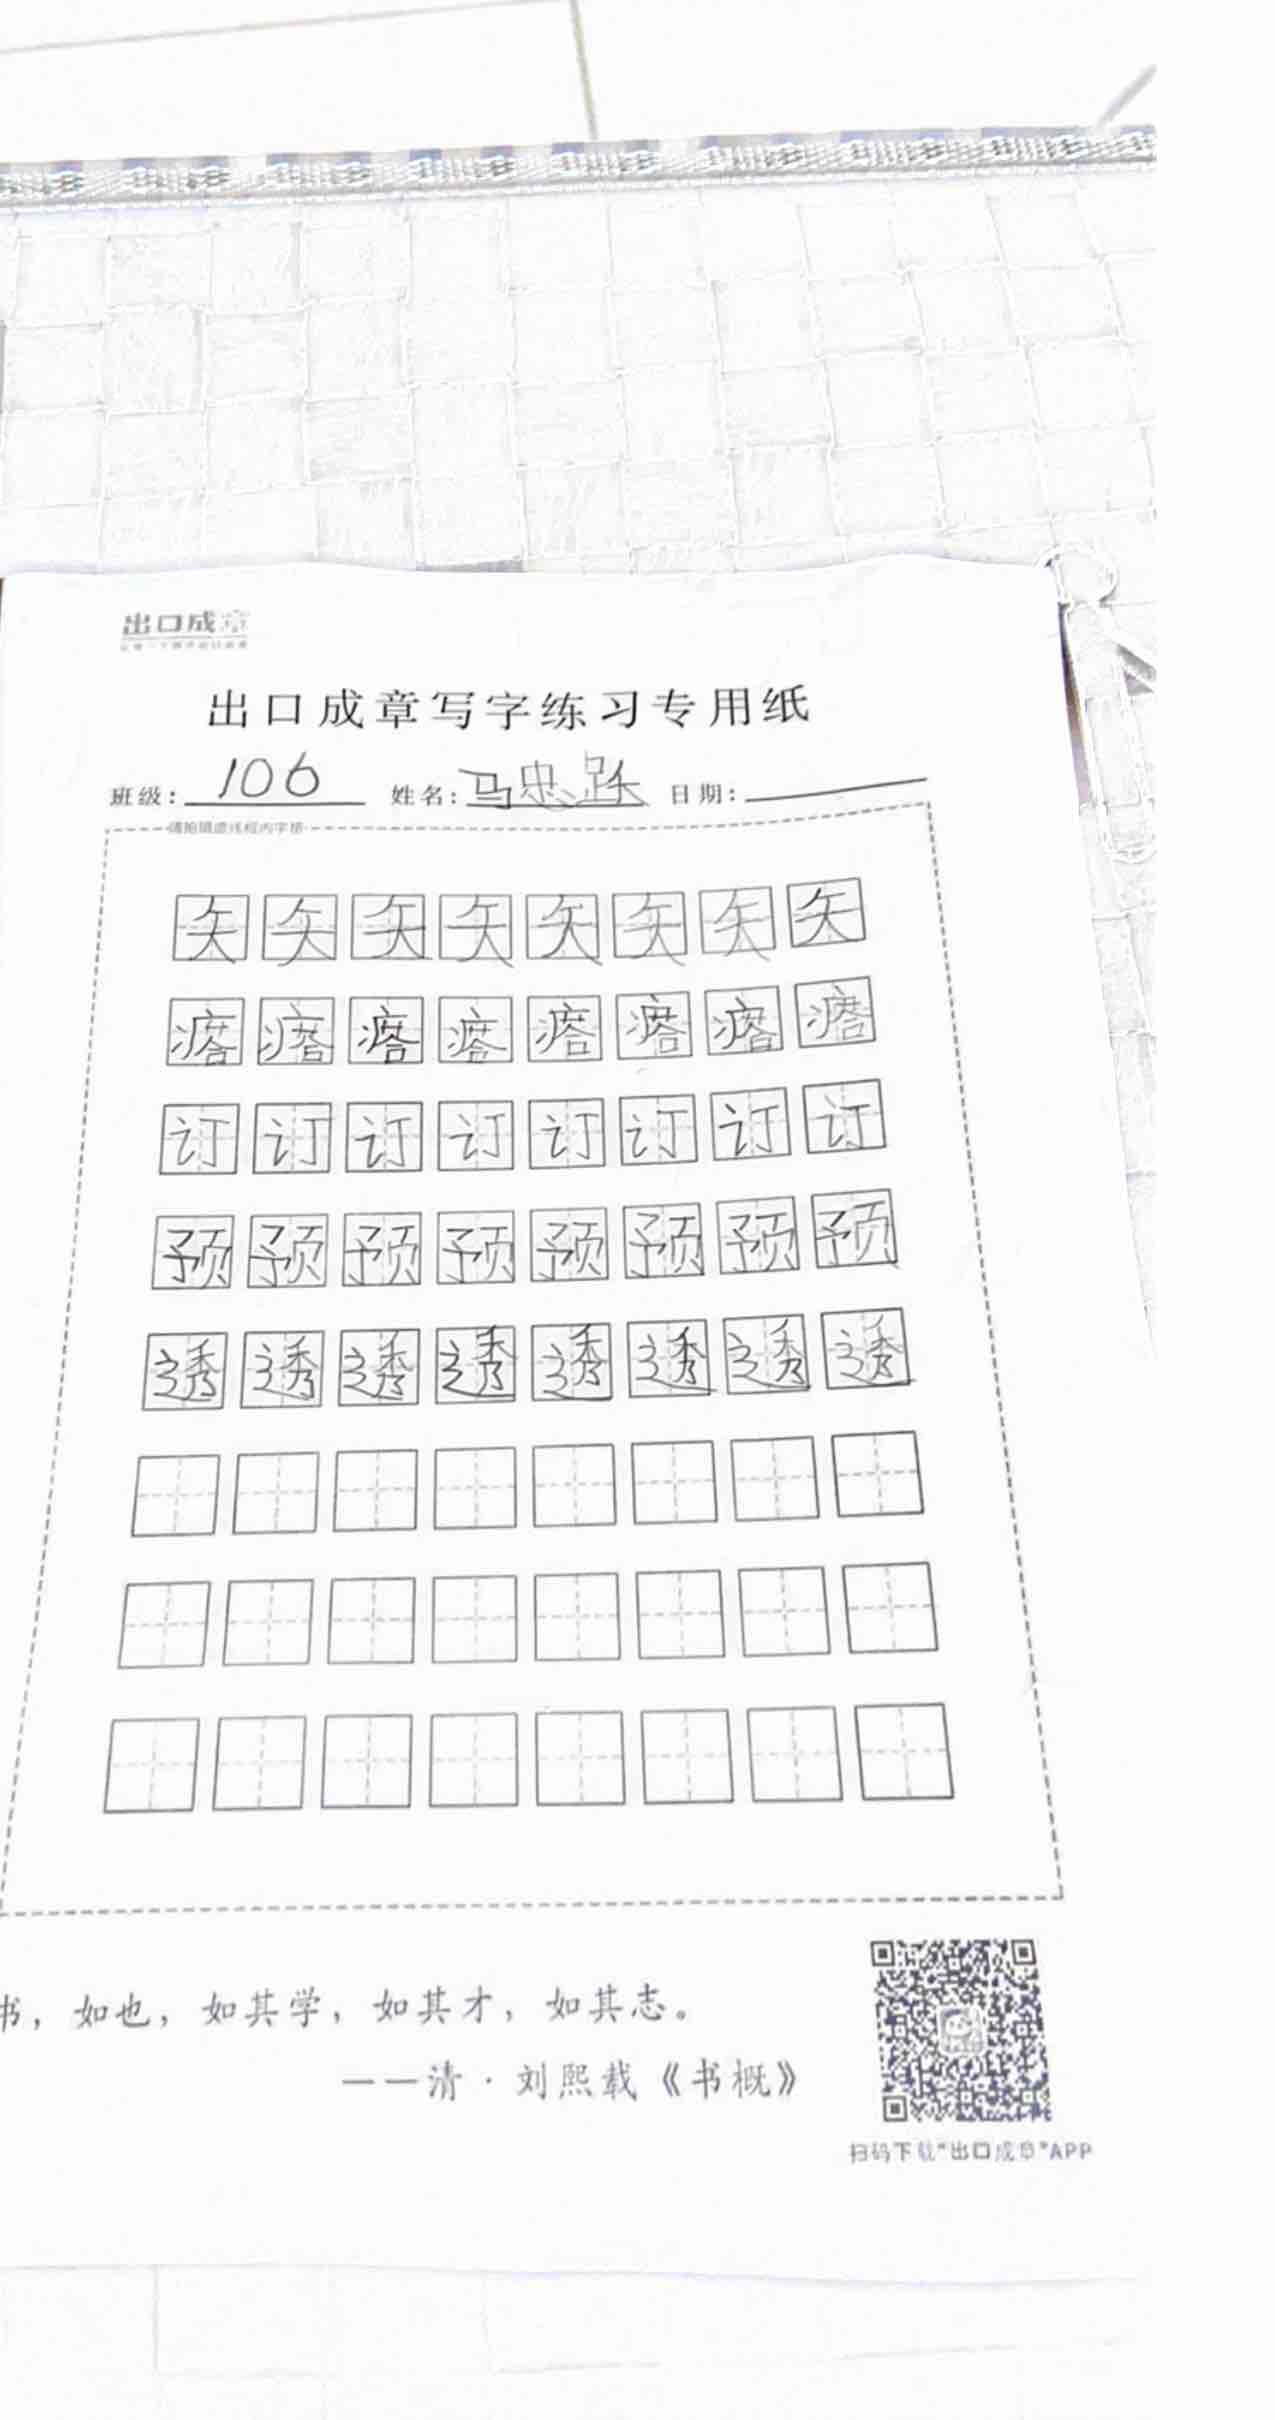 出口成章
出口成章写字练习专用纸
班级：106 姓名：马忠跃 日期：
请拍摄虚线框内字格
矢矢矢矢矢矢矢矢
瘩瘩瘩瘩瘩瘩瘩瘩
订订订订订订订订
预预预预预预预预
透透透透透透透透
书，如也，如其学，如其才，如其志。
——清·刘熙载《书概》
扫码下载“出口成章”APP